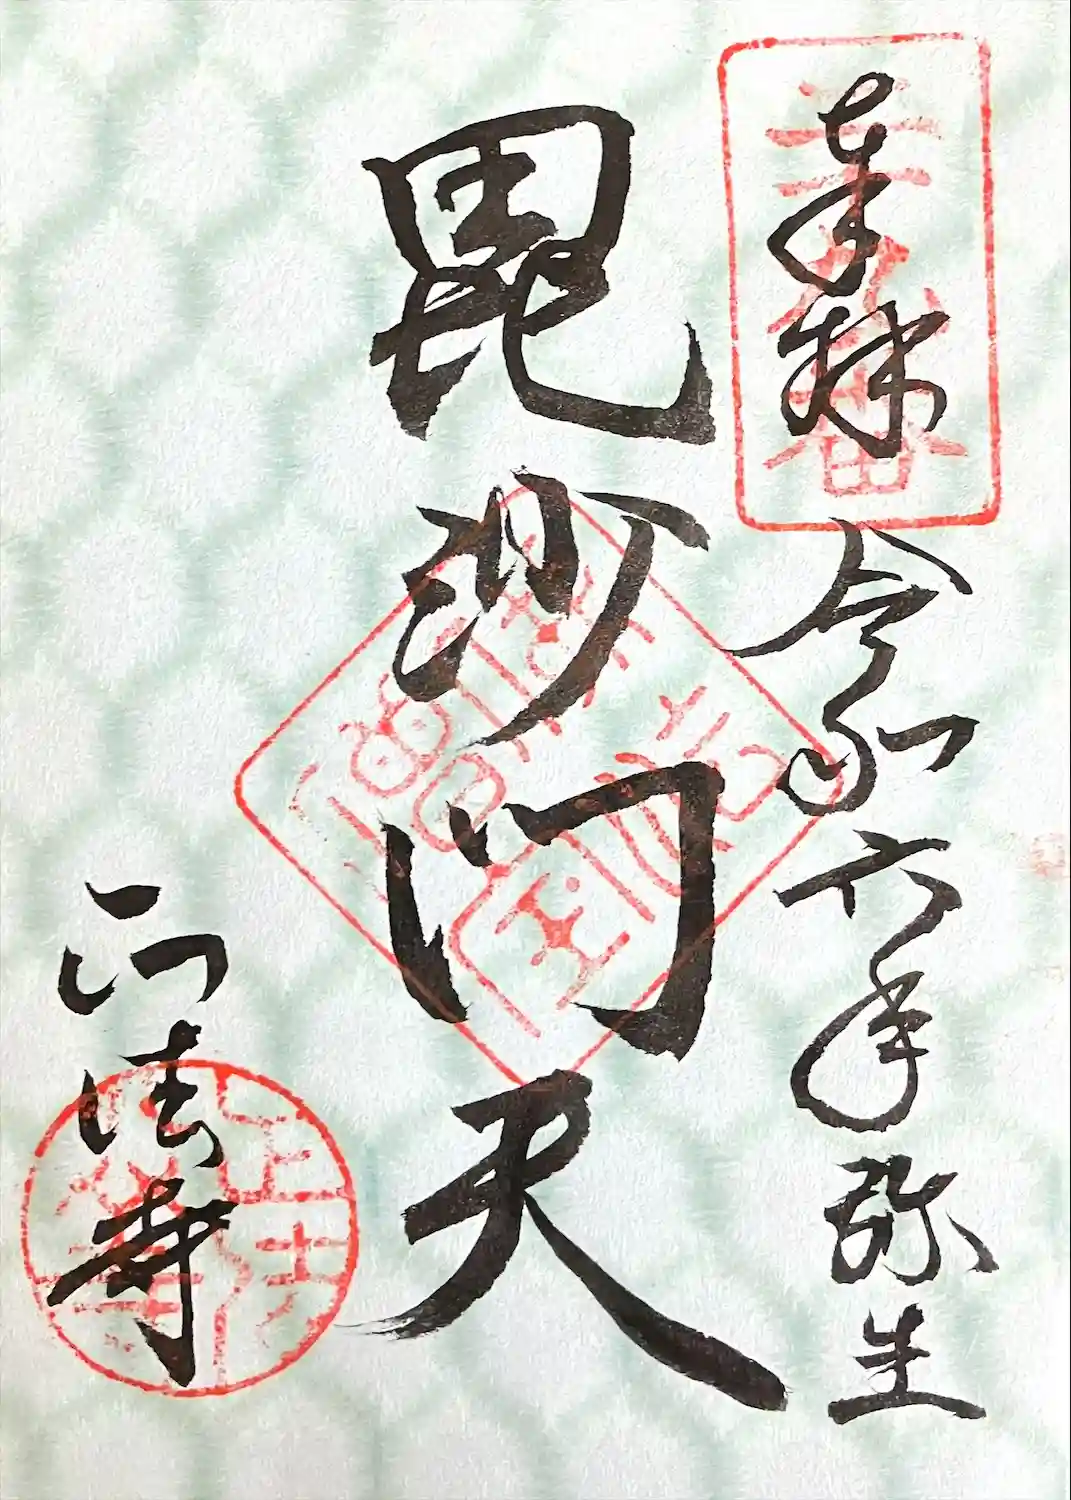 奉拝 令和六年弥生
毘沙門天
正法寺